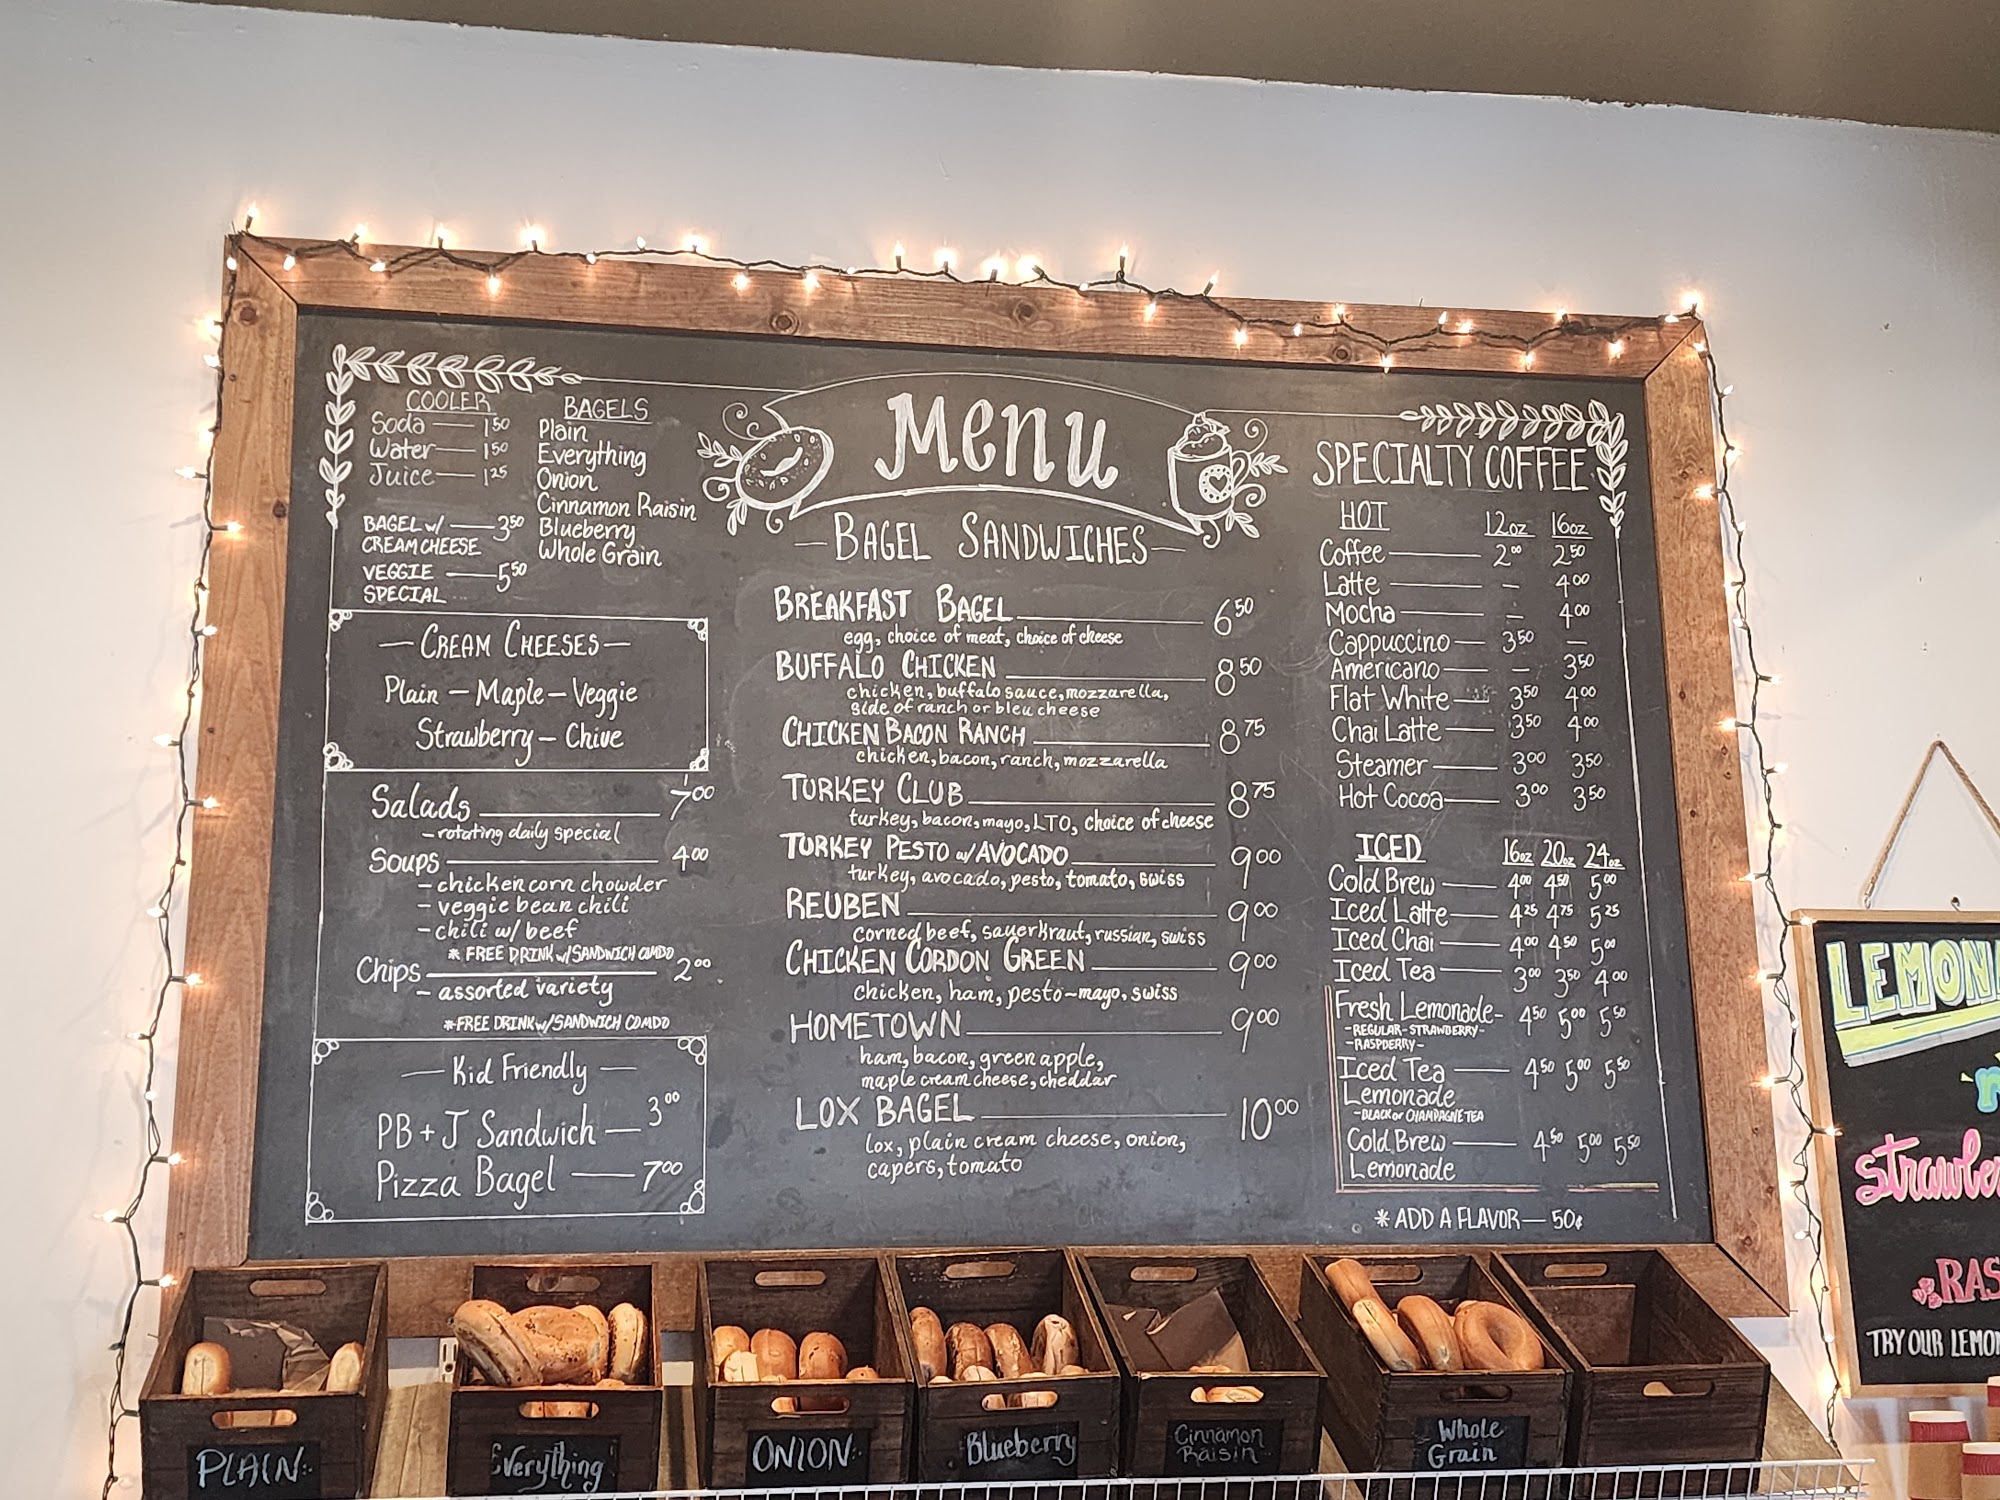 Menu
COOLER
Soda — 1.50
Water — 1.50
Juice — 1.25
BAGEL w/ — 3.50
CREAM CHEESE
VEGGIE — 5.50
SPECIAL
BAGELS
Plain
Everything
Onion
Cinnamon Raisin
Blueberry
Whole Grain
— CREAM CHEESES —
Plain — Maple — Veggie
Strawberry — Chive
Salads 7.00
- rotating daily special
Soups 4.00
- chicken corn chowder
- veggie bean chili
- chili w/ beef
* FREE DRINK w/ SANDWICH COMBO
Chips 2.00
- assorted variety
* FREE DRINK w/ SANDWICH COMBO
— Kid Friendly —
PB + J Sandwich — 3.00
Pizza Bagel — 7.00
— BAGEL SANDWICHES —
BREAKFAST BAGEL 6.50
egg, choice of meat, choice of cheese
BUFFALO CHICKEN 8.50
chicken, buffalo sauce, mozzarella,
side of ranch or bleu cheese
CHICKEN BACON RANCH 8.75
chicken, bacon, ranch, mozzarella
TURKEY CLUB 8.75
turkey, bacon, mayo, LTO, choice of cheese
TURKEY PESTO w/ AVOCADO 9.00
turkey, avocado, pesto, tomato, swiss
REUBEN 9.00
corned beef, sauerkraut, russian, swiss
CHICKEN CORDON GREEN 9.00
chicken, ham, pesto-mayo, swiss
HOMETOWN 9.00
ham, bacon, green apple,
maple cream cheese, cheddar
LOX BAGEL 10.00
lox, plain cream cheese, onion,
capers, tomato
SPECIALTY COFFEE
HOT 12oz 16oz
Coffee — 2.00 2.50
Latte — - 4.00
Mocha — - 4.00
Cappuccino — 3.50 —
Americano — - 3.50
Flat White — 3.50 4.00
Chai Latte — 3.50 4.00
Steamer — 3.00 3.50
Hot Cocoa — 3.00 3.50
ICED 16oz 20oz 24oz
Cold Brew — 4.00 4.50 5.00
Iced Latte — 4.25 4.75 5.25
Iced Chai — 4.00 4.50 5.00
Iced Tea — 3.00 3.50 4.00
Fresh Lemonade - 4.50 5.00 5.50
- REGULAR - STRAWBERRY -
- RASPBERRY -
Iced Tea — 4.50 5.00 5.50
Lemonade
- BLACK or CHAMPAGNE TEA
Cold Brew — 4.50 5.00 5.50
Lemonade
* ADD A FLAVOR — 50¢
PLAIN
Everything
ONION
Blueberry
Cinnamon
Raisin
Whole
Grain
LEMON
strawber
RAS
TRY OUR LEMO